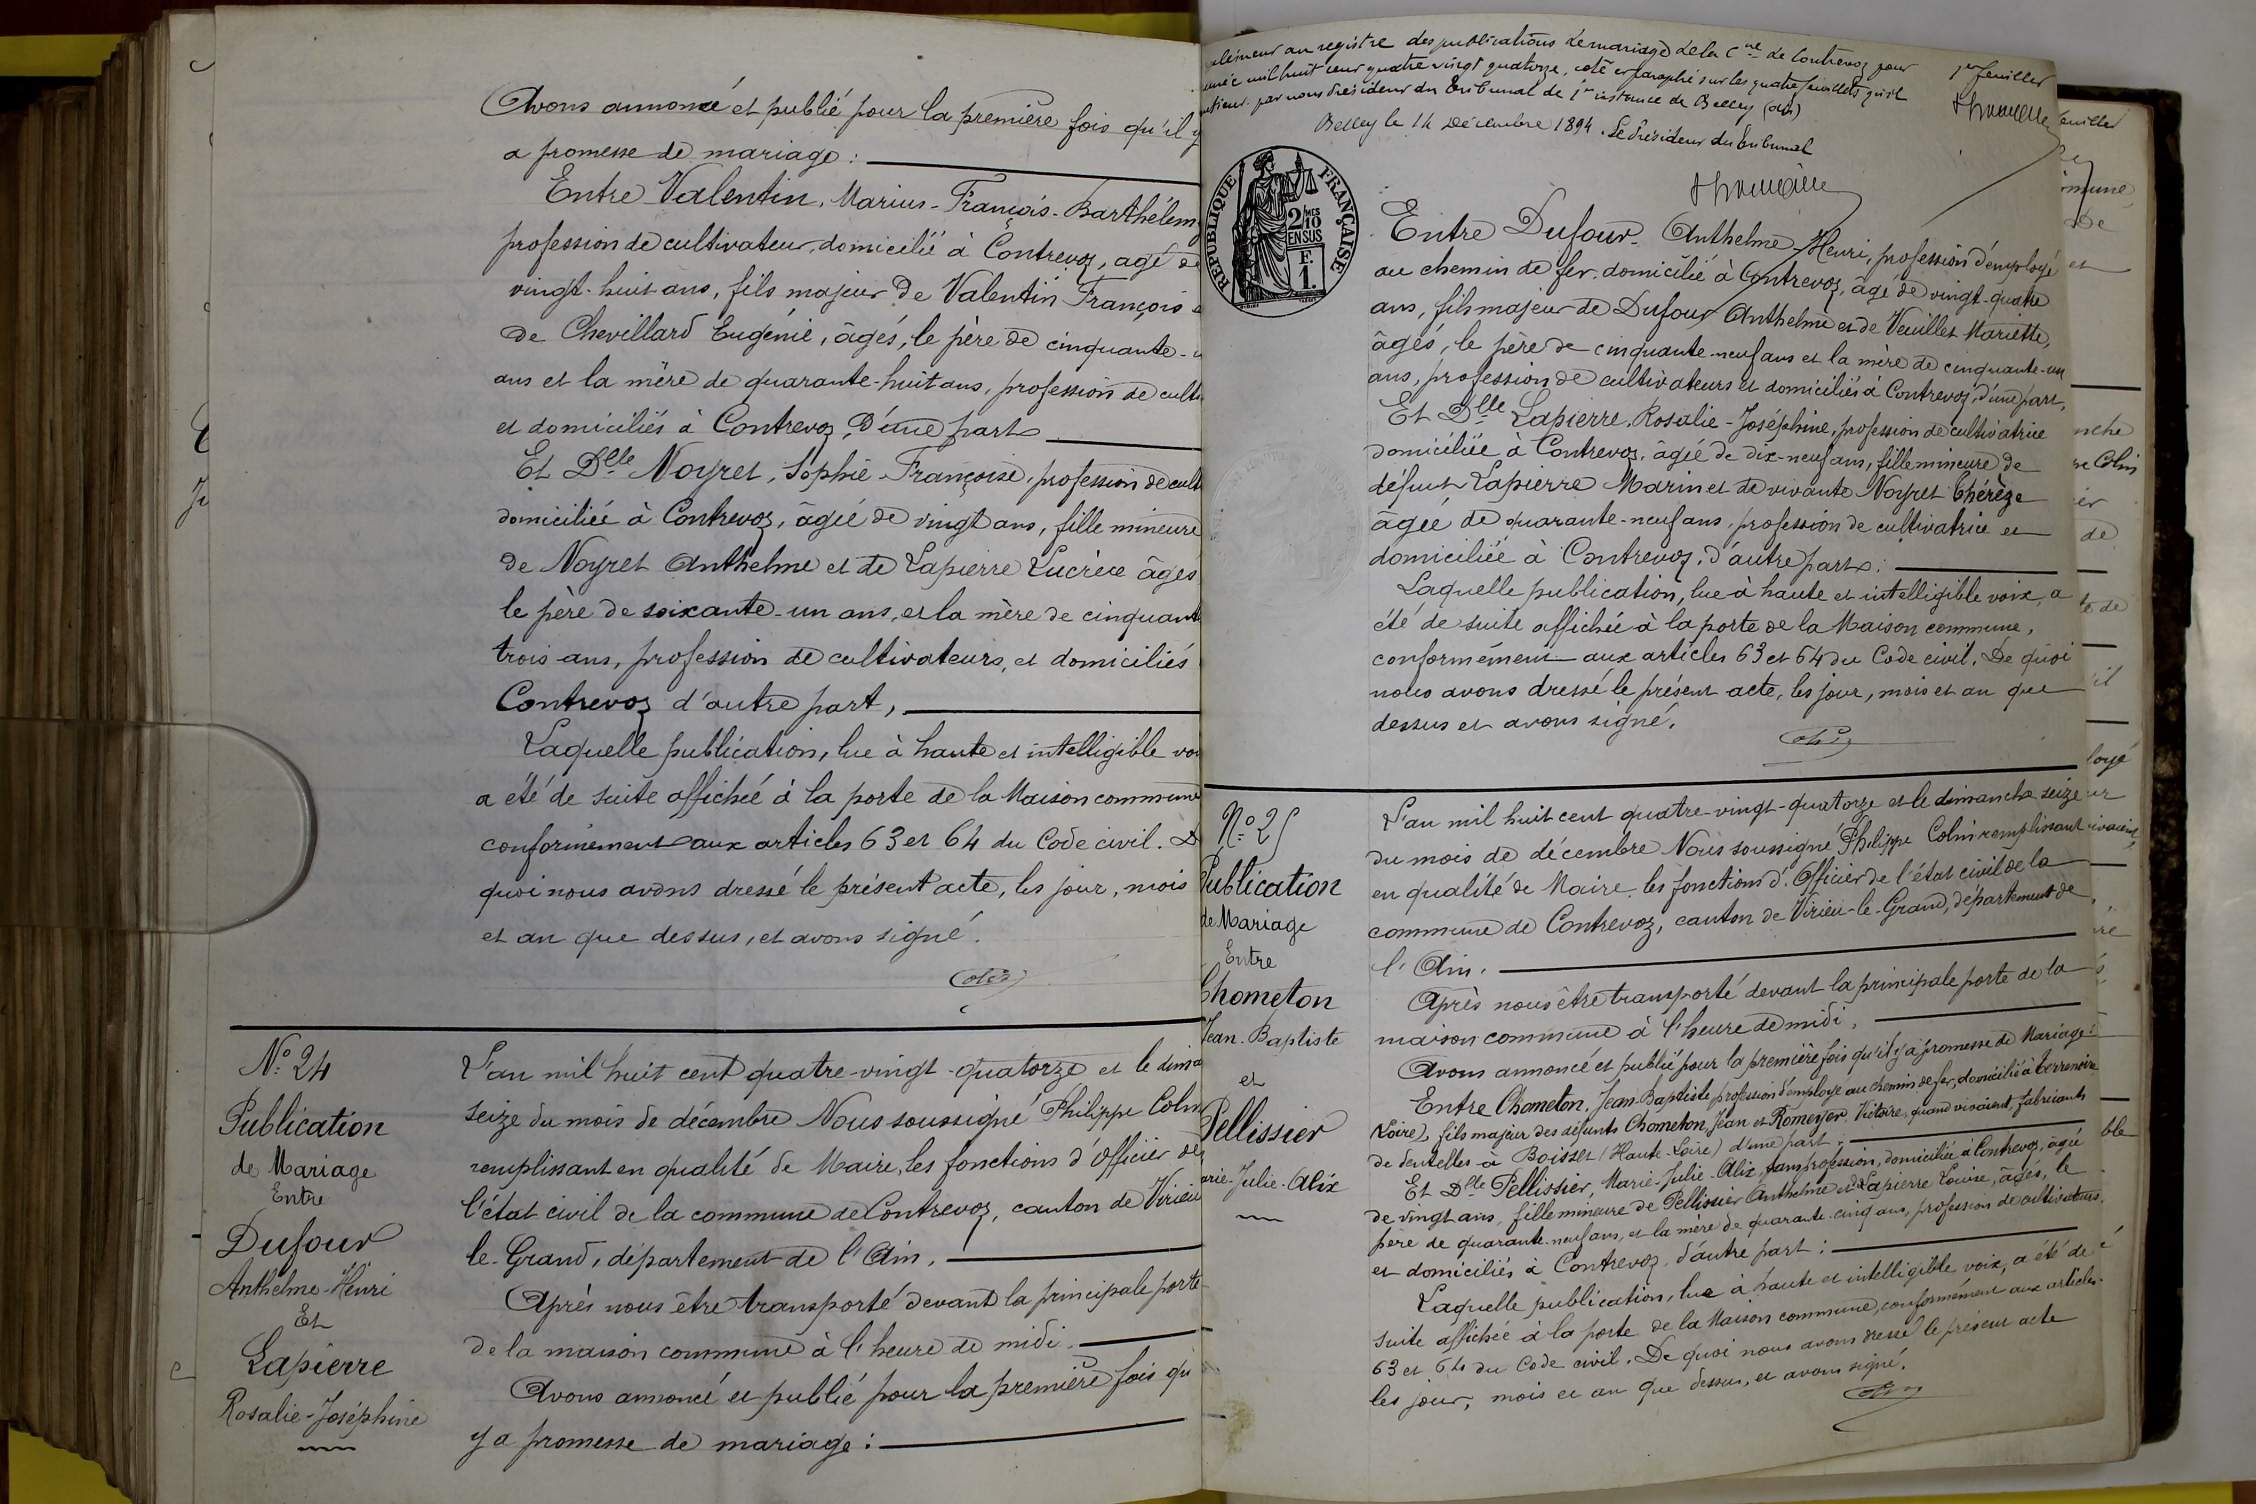 Avons annoncé et publié pour la première fois qu'il y
a promesse de mariage :
Entre Valentin, Marius-François-Barthélem
profession de cultivateur, domicilié à Contrevoz, agé de
vingt-huit ans, fils majeur de Valentin François
de Chevillard Eugénie, âgés, le père de cinquante-
ans et la mère de quarante-huit ans, profession de culti
et domiciliés à Contrevoz, d'une part
Et Dlle Noyret, Sophie-Françoise, profession de cult
domiciliée à Contrevoz, âgée de vingt ans, fille mineure
de Noyret Anthelme et de Lapierre Lucrèce âgés
le père de soixante-un ans, et la mère de cinquant
trois ans, profession de cultivateurs, et domiciliés
Contrevoz d'autre part,
Laquelle publication, lue à haute et intelligible voi
a été de suite affichée à la porte de la Maison commune
conformément aux articles 63 et 64 du Code civil. D
quoi nous avons dressé le présent acte, les jour, mois
et an que dessus, et avons signé.
Colin
N° 24
Publication
de Mariage
Entre
Dufour
Anthelme-Henri
Et
Lapierre
Rosalie-Joséphine
L'an mil huit cent quatre-vingt-quatorze et le dima
seize du mois de décembre Nous soussigné Philippe Colin
remplissant en qualité de Maire, les fonctions d'Officier de
l'état civil de la commune de Contrevoz, canton de Virieu
le-Grand, département de l'Ain.
Après nous être transporté devant la principale porte
de la maison commune à l'heure de midi.
Avons annoncé et publié pour la première fois qu'
y a promesse de mariage :
au registre des publications de mariage de la Cne de Contrevoz pour
mil huit cent quatre vingt quatorze, coté et paraphé sur les quatre feuillets qu'il
par nous Président du Tribunal de 1re instance de Belley (Ain)
Belley le 14 Décembre 1894. Le Président du Tribunal
1er feuillet
RÉPUBLIQUE FRANÇAISE
2/10 MES
EN SUS
F.
1.
Entre Dufour Anthelme-Henri, profession d'employé
au chemin de fer, domicilié à Contrevoz, âgé de vingt-quatre
ans, fils majeur de Dufour Anthelme et de Veuillet Mariette,
âgés, le père de cinquante-neuf ans et la mère de cinquante-un
ans, profession de cultivateurs et domiciliés à Contrevoz, d'une part,
Et Dlle Lapierre, Rosalie-Joséphine, profession de cultivatrice
domiciliée à Contrevoz, âgée de dix-neuf ans, fille mineure de
défunt Lapierre Marin et de vivante Noyret Thérèze
âgée de quarante-neuf ans, profession de cultivatrice et
domiciliée à Contrevoz, d'autre part :
Laquelle publication, lue à haute et intelligible voix, a
été de suite affichée à la porte de la Maison commune,
conformément aux articles 63 et 64 du Code civil. De quoi
nous avons dressé le présent acte, les jour, mois et an que
dessus et avons signé.
Colin
N° 25
Publication
de Mariage
Entre
Chometon
Jean-Baptiste
et
Pellissier
arie-Julie-Alix
L'an mil huit cent quatre-vingt-quatorze et le dimanche seize
du mois de décembre Nous soussigné Philippe Colin remplissant
en qualité de Maire les fonctions d'Officier de l'état civil de la
commune de Contrevoz, canton de Virieu-le-Grand, département de
l'Ain.
Après nous être transporté devant la principale porte de la
maison commune à l'heure de midi,
Avons annoncé et publié pour la première fois qu'il y a promesse de Mariage :
Entre Chometon, Jean-Baptiste profession d'employé au chemin de fer, domicilié à Terrenoire
(Loire), fils majeur des défunts Chometon, Jean et Romeyer Victoire, quand vivaient, fabricants
de dentelles à Boisset (Haute-Loire) d'une part :
Et Dlle Pellissier, Marie-Julie-Alix, sans profession, domiciliée à Contrevoz, âgée
de vingt ans, fille mineure de Pellissier Anthelme et de Lapierre Louise, âgés, le
père de quarante-neuf ans, et la mère de quarante-cinq ans, profession de cultivateurs,
et domiciliés à Contrevoz, d'autre part :
Laquelle publication, lue à haute et intelligible voix, a été de
suite affichée à la porte de la Maison commune, conformément aux articles
63 et 64 du Code civil. De quoi nous avons dressé le présent acte
les jour, mois et an que dessus, et avons signé.
Colin